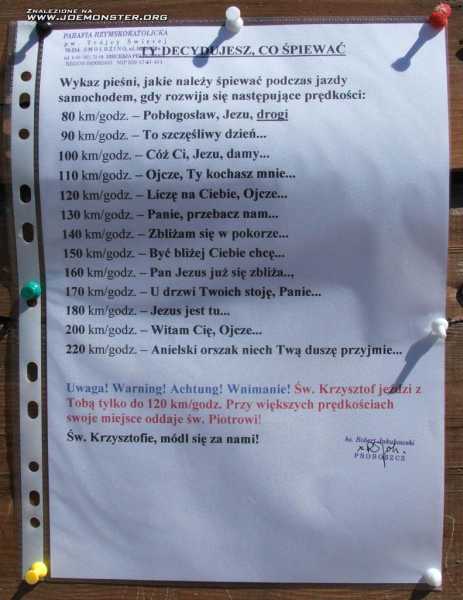 ZNALEZIONE NA
WWW.JOEMONSTER.ORG
PARAFIA RZYMSKOKATOLICKA
p.w. Trójcy Świętej
TY DECYDUJESZ, CO ŚPIEWAĆ
Wykaz pieśni, jakie należy śpiewać podczas jazdy
samochodem, gdy rozwija się następujące prędkości:
80 km/godz. – Pobłogosław, Jezu, drogi
90 km/godz. – To szczęśliwy dzień...
100 km/godz. – Cóż Ci, Jezu, damy...
110 km/godz. – Ojcze, Ty kochasz mnie...
120 km/godz. – Liczę na Ciebie, Ojcze...
130 km/godz. – Panie, przebacz nam...
140 km/godz. – Zbliżam się w pokorze...
150 km/godz. – Być bliżej Ciebie chcę...
160 km/godz. – Pan Jezus już się zbliża..,
170 km/godz. – U drzwi Twoich stoję, Panie...
180 km/godz. – Jezus jest tu...
200 km/godz. – Witam Cię, Ojcze...
220 km/godz. – Anielski orszak niech Twą duszę przyjmie...
Uwaga! Warning! Achtung! Wnimanie! Św. Krzysztof jeździ z
Tobą tylko do 120 km/godz. Przy większych prędkościach
swoje miejsce oddaje św. Piotrowi!
Św. Krzysztofie, módl się za nami!
ks. Robert Jakubowski
PROBOSZCZ